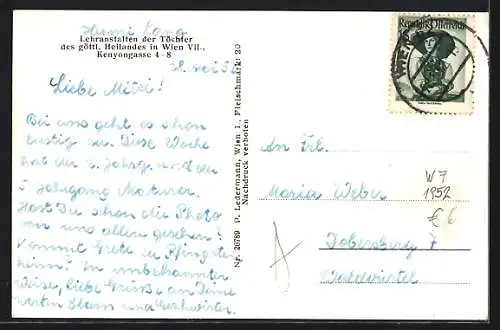 Hermi Lang
Lehranstalten der Töchter
des göttl. Heilandes in Wien VII.,
Kenyongasse 4-8
Liebe Mitzi!
Bei uns geht es schon
lustig zu. Diese Woche
hat der 2. Jahrg. und der
5. Jahrgang Matura.
Hast Du schon die Photo
von uns allen gesehen?
Kommt Grete zu Pfingsten
heim? In unbekannter
Weise, liebe Grüße an Deine
werten Eltern und Geschwister.
Nr. 26789 P. Ledermann, Wien 1, Fleischmarkt 20
Nachdruck verboten
Republik Österreich
An Frl.
Maria Weber
W7
1952
€ 6
Dobersberg 7
Waldviertel